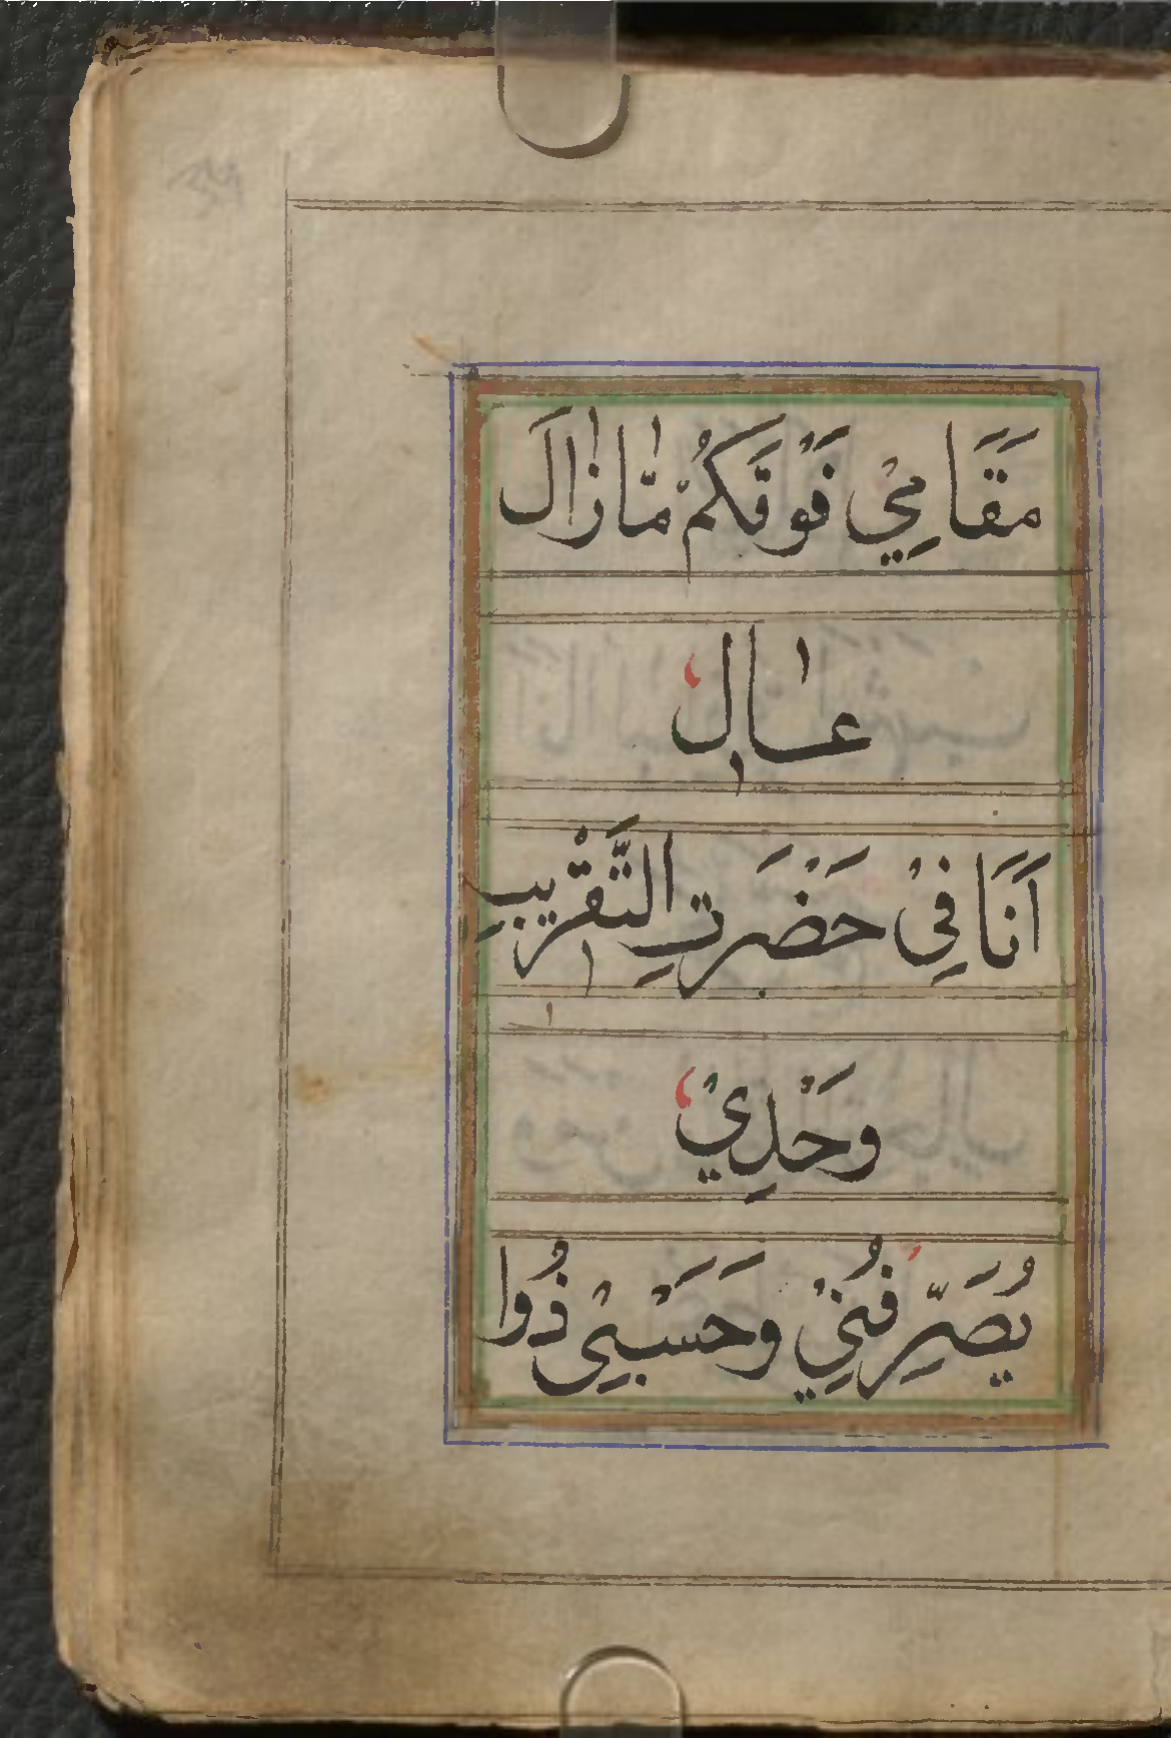 مَقَامِيْ فَوْقَكُمْ مَّازَالَ
عَالِ
اَنَا فِيْ حَضْرَتِ التَّقْرِيبِ
وَحْدِيْ
يُصَرِّفُنِيْ وَحَسْبِيْ ذُوا